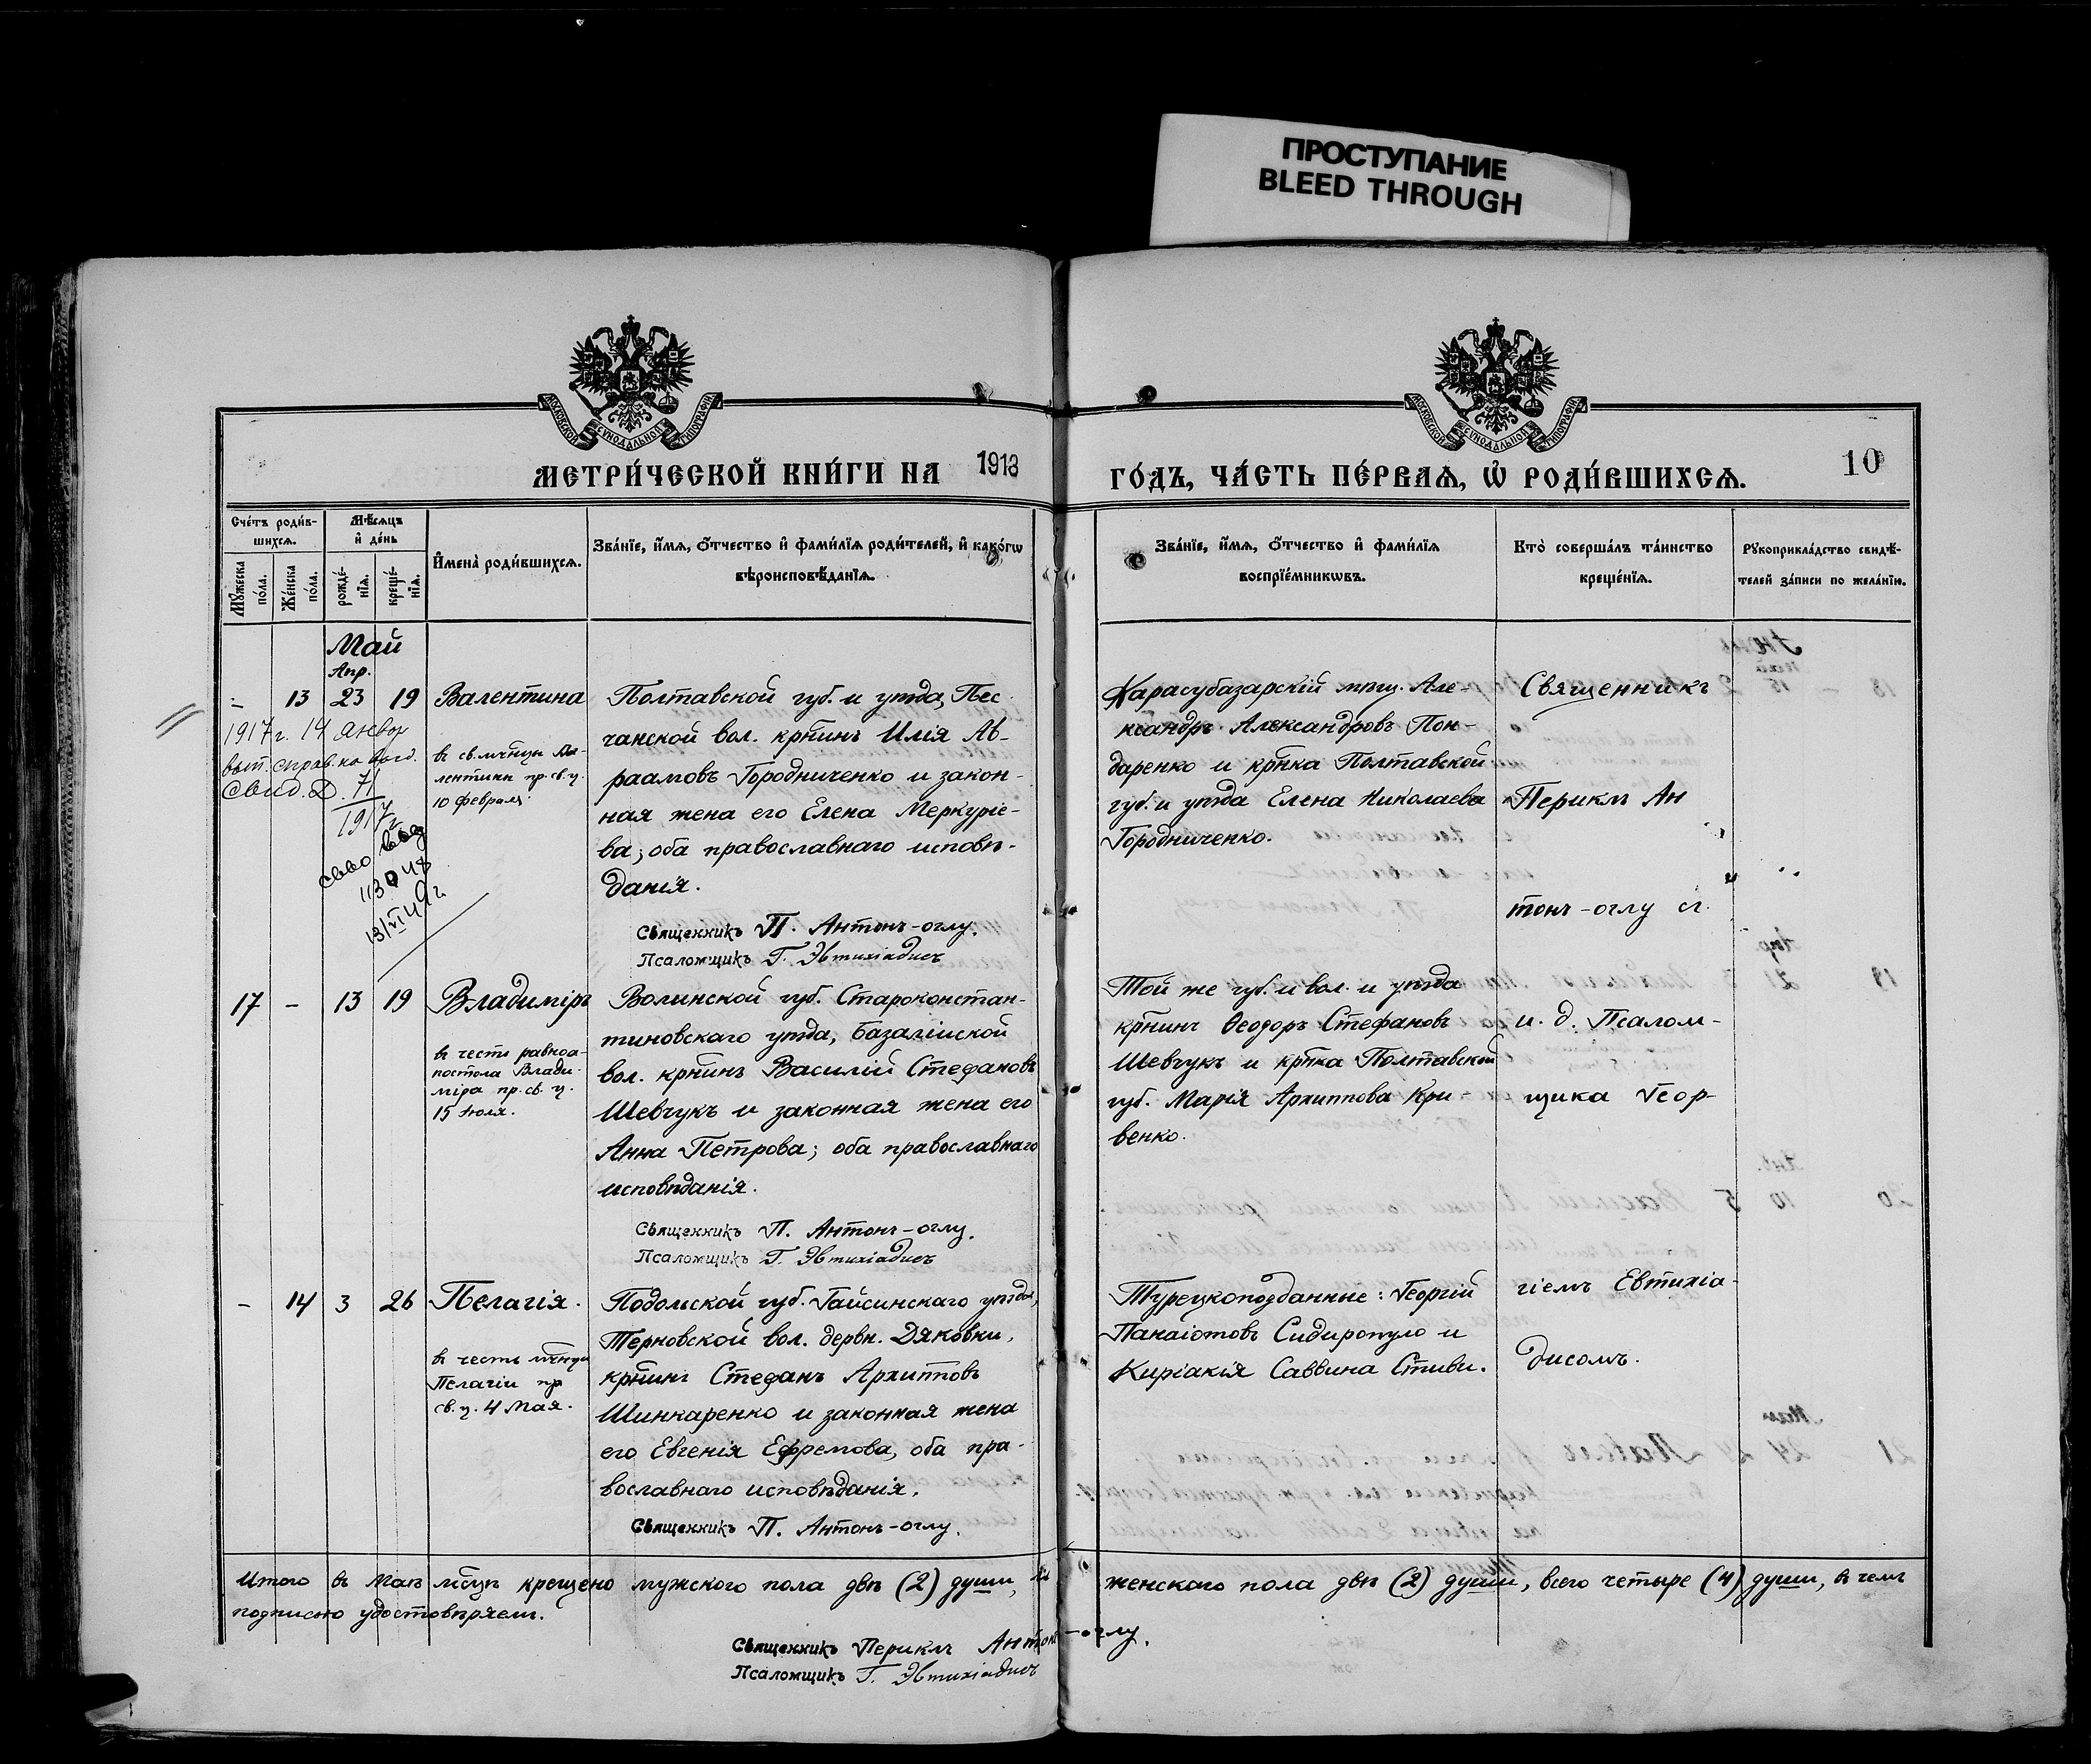 ПРОСТУПАНИЕ
BLEED THROUGH
МОСКОВСКОЙ СѴНОДАЛЬНОЙ ТИПОГРАФІИ
МОСКОВСКОЙ СѴНОДАЛЬНОЙ ТИПОГРАФІИ
МЕТРИ́ЧЕСКОЙ КНИ́ГИ НА 1913 ГО́ДЪ, ЧА́СТЬ ПЕ́РВАѦ, Ѡ҆ РОДИ́ВШИХСѦ. 10
Сче́тъ роди́в-
шихсѧ.
Мꙋ́жеска по́ла.
Же́нска по́ла.
Мѣ́сѧцъ
и҆ де́нь
рожде́-
нїѧ.
креще́-
нїѧ.
И҆мена̀ роди́вшихсѧ.
Зва́нїе, и҆́мѧ, ѻ҆́тчество и҆ фами́лїѧ роди́телей, и҆ како́гѡ
вѣроисповѣ́данїѧ.
Зва́нїе, и҆́мѧ, ѻ҆́тчество и҆ фами́лїѧ
воспрїе́мникѡвъ.
Кто̀ соверша́лъ та́инство
креще́нїѧ.
Рꙋкоприкла́дство свидѣ́-
телей за́писи по жела́нїю.
Май
Апр.
- 13 23 19 Валентина
в св. мчницы Ва-
лентины пр. св. ц.
10 февраля.
1917 г. 14 января
выт. справ. на
свид. № 71
1917 г.
св-во
13/VI 49 г.
Полтавской губ. и уѣзда, Пес-
чанской вол. кр̃нинъ Илія Ав-
раамовъ Городниченко и закон-
ная жена его Елена Меркуріе-
ва; оба православнаго исповѣ-
данія.
Священникъ П. Антонъ-оглу.
Псаломщикъ Г. Эвтихіадисъ
Карасубазарскій мѣщ. Але-
ксандръ Александровъ Пон-
даренко и кр̃нка Полтавской
губ. и уѣзда Елена Николаева
Городниченко.
Священникъ
Периклъ Ан
тонъ-оглу съ
17 - 13 19 Владиміръ
в честь равноа-
постола Влади-
міра пр. св. ц.
15 Іюля.
Волынской губ. Староконстан-
тиновскаго уѣзда, Базалійской
вол. кр̃нинъ Василій Стефановъ
Шевчукъ и законная жена его
Анна Петрова; оба православнаго
исповѣданія.
Священникъ П. Антонъ-оглу.
Псаломщикъ Г. Эвтихіадисъ
Той же губ. и вол. и уѣзда
кр̃нинъ Ѳеодоръ Стефановъ
Шевчукъ и кр̃нка Полтавской
губ. Марія Архиппова Кри-
венко.
и. д. Псалом-
щика Геор-
- 14 3 26 Пелагія.
в честь мчницы
Пелагіи пр
св. ц. 4 Мая.
Подольской губ. Гайсинскаго уѣзда,
Терновской вол. дервн. Дяковки,
кр̃нинъ Стефанъ Архипповъ
Шинкаренко и законная жена
его Евгенія Ефремова, оба пра-
вославнаго исповѣданія.
Священникъ П. Антонъ-оглу.
Турецкоподданные: Георгій
Панаіотовъ Сидиропуло и
Киріакія Саввина Стиви.
гіемъ Евтихіа-
дисомъ.
Итого въ Маѣ мѣсяцѣ крещено мужского пола двѣ (2) души, женскаго пола двѣ (2) души, всего четыре (4) души, в чемъ
подписью удостовѣряемъ.
Священникъ Периклъ Антонъ-оглу.
Псаломщикъ Г. Эвтихіадисъ